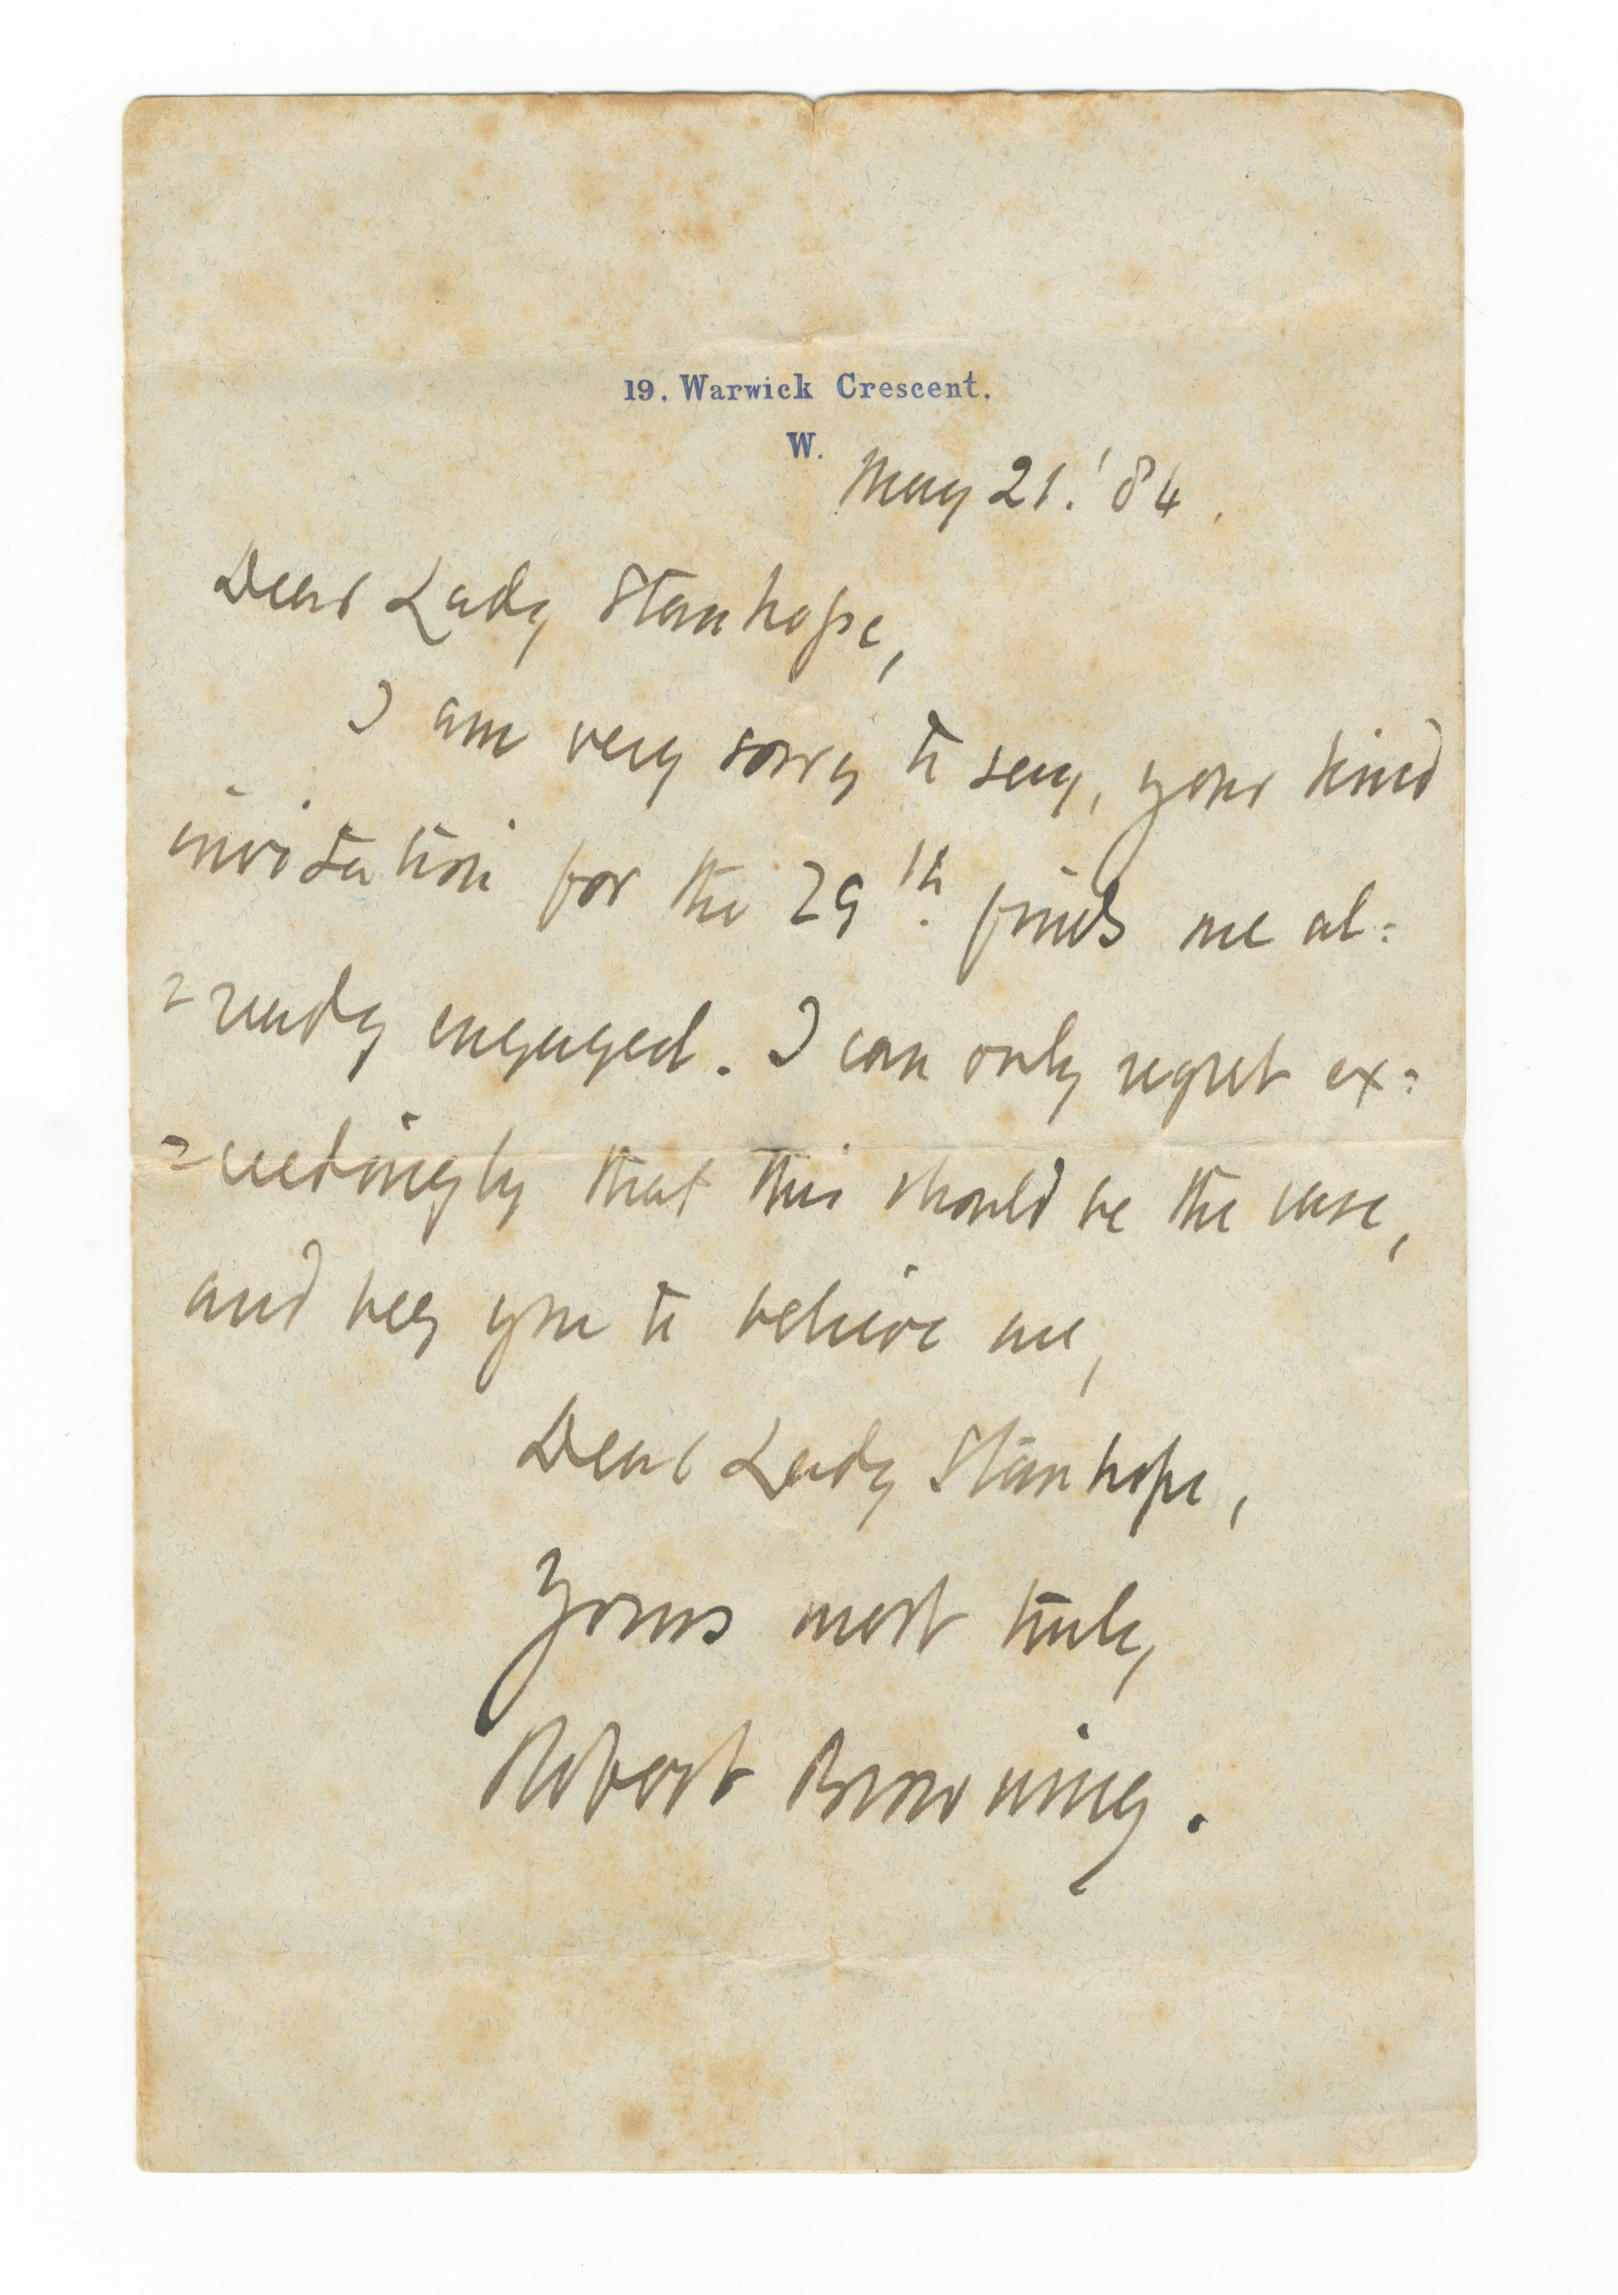 19. Warwick Crescent.
W.
May 21. '84.
Dear Lady Stanhope,
I am very sorry to say, your kind
invitation for the 29th. finds me al=
=ready engaged. I can only regret ex=
=ceedingly that this should be the case,
and beg you to believe me,
Dear Lady Stanhope,
Yours most truly,
Robert Browning.